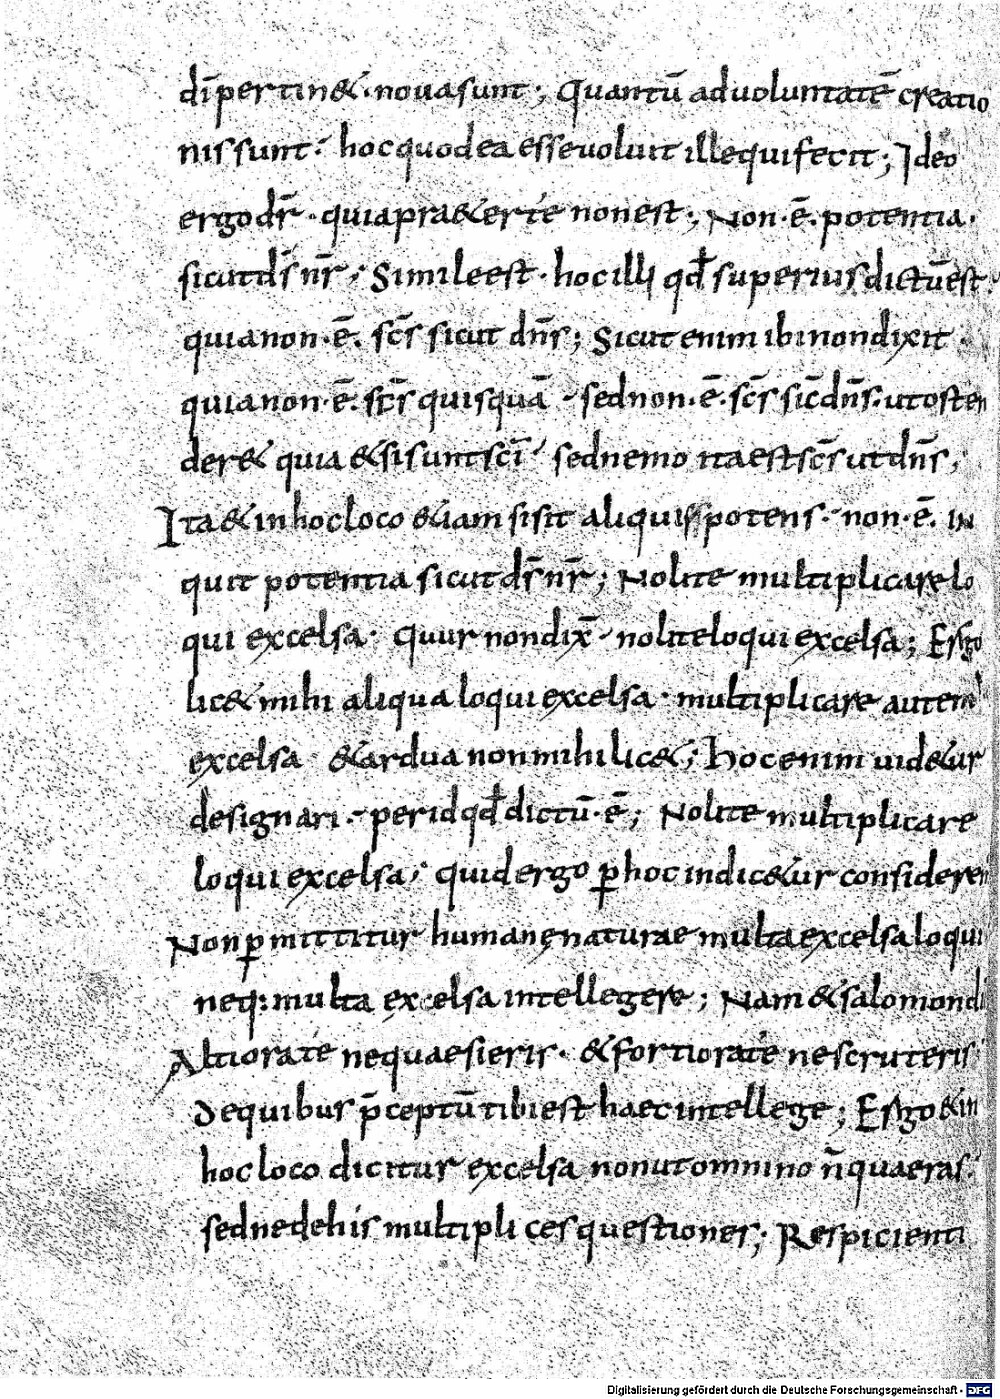 dī pertin&·nouasunt; Quantū aduoluntatē creatio
nis sunt· hoc quod ea esse uoluit ille qui fecit; Ideo
ergo dr̄· quia pra&er te non est; Non·ē·potentia·
sicut dī nr̄; Simile est·hoc illi qđ superius dictū est·
quia non·ē·sc̄s sicut dn̄s; Sicut enim ibi non dixit·
quia non·ē·sc̄s quisquā· sed non·ē·sc̄s sic̄ dn̄s·ut osten
der& quia &si sunt sc̄i· sed nemo ita est sc̄s ut dn̄s;
Ita & in hoc loco &iam si sit aliquis potens· non·ē· in
quit potentia sicut ds̄ nr̄; Nolite multiplicare lo
qui excelsa· Quur non dix̄· nolite loqui excelsa; Ergo
lic& mihi aliqua loqui excelsa· multiplicare autem
excelsa &ardua non mihi lic&; Hoc enim uid&ur
designari· per id qđ dictū·ē; Nolite multiplicare
loqui excelsa; quid ergo ꝑ hoc indic&ur consideren
Non ꝑmittitur humanę naturae multa excelsa loqui
neq: multa excelsa intellegere; Nam & salomon di
Altiora te ne quaesieris· & fortiora te ne scruteris
De quibus p̄ceptū tibi est haec intellege; Ergo & in
hoc loco dicitur excelsa non ut omnino n̄ quaeras·
sed ne de his multiplices questiones; Respicienti